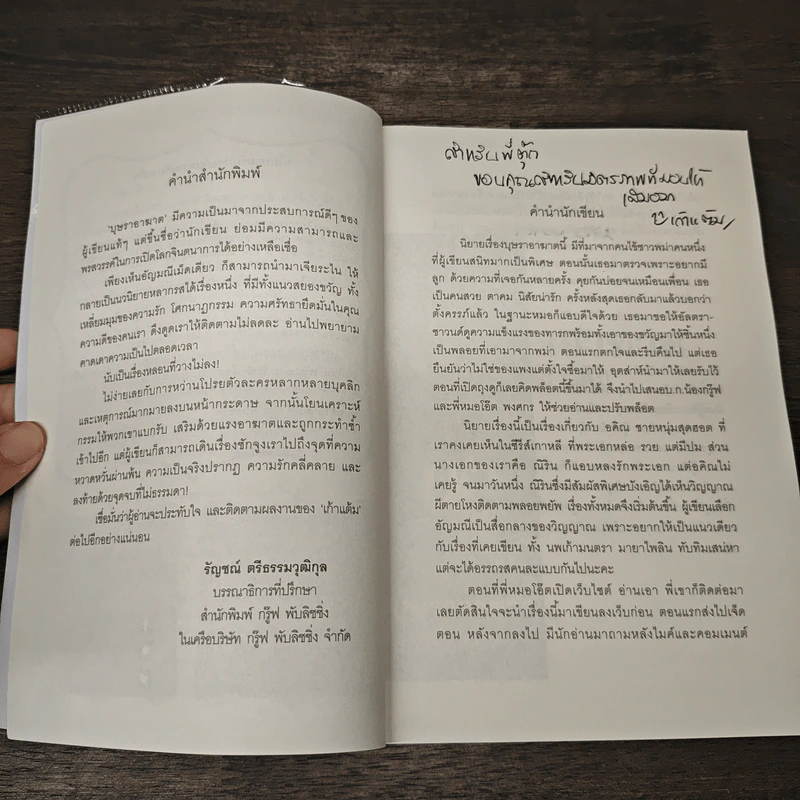 คำนำสำนักพิมพ์
'บุษราอาฆาต' มีความเป็นมาจากประสบการณ์ดีๆ ของ
ผู้เขียนแท้ๆ แต่ขึ้นชื่อว่านักเขียน ย่อมมีความสามารถและ
พรสวรรค์ในการเปิดโลกจินตนาการได้อย่างเหลือเชื่อ
เพียงเห็นอัญมณีเม็ดเดียว ก็สามารถนำมาเจียระไน ให้
กลายเป็นนวนิยายหลากรสได้เรื่องหนึ่ง ที่มีทั้งแนวสยองขวัญ ทั้ง
เหลี่ยมมุมของความรัก โศกนาฏกรรม ความศรัทธายึดมั่นในคุณ
ความดีของคนเรา ดึงดูดเราให้ติดตามไม่ลดละ อ่านไปพยายาม
คาดเดาความเป็นไปตลอดเวลา
นับเป็นเรื่องหลอนที่วางไม่ลง!
ไม่ง่ายเลยกับการหว่านโปรยตัวละครหลากหลายบุคลิก
และเหตุการณ์มากมายลงบนหน้ากระดาษ จากนั้นโยนเคราะห์
กรรมให้พวกเขาแบกรับ เสริมด้วยแรงอาฆาตและถูกกระทำซ้ำ
เข้าไปอีก แต่ผู้เขียนก็สามารถเดินเรื่องชักจูงเราไปถึงจุดที่ความ
หวาดหวั่นผ่านพ้น ความเป็นจริงปรากฏ ความรักคลี่คลาย และ
ลงท้ายด้วยจุดจบที่ไม่ธรรมดา!
เชื่อมั่นว่าผู้อ่านจะประทับใจ และติดตามผลงานของ 'เก้าแต้ม'
ต่อไปอีกอย่างแน่นอน
รัญชณ์ ตรีธรรมวุฒิกุล
บรรณาธิการที่ปรึกษา
สำนักพิมพ์ กรู๊ฟ พับลิชชิ่ง
ในเครือบริษัท กรู๊ฟ พับลิชชิ่ง จำกัด
สำหรับพี่ตุ๊ก
ขอบคุณสำหรับมิตรภาพที่มอบให้
เสมอ
เก้าแต้ม
คำนำนักเขียน
นิยายเรื่องบุษราอาฆาตนี้ มีที่มาจากคนไข้ชาวพม่าคนหนึ่ง
ที่ผู้เขียนสนิทมากเป็นพิเศษ ตอนนั้นเธอมาตรวจเพราะอยากมี
ลูก ด้วยความที่เจอกันหลายครั้ง คุยกันบ่อยจนเหมือนเพื่อน เธอ
เป็นคนสวย ตาคม นิสัยน่ารัก ครั้งหลังสุดเธอกลับมาแล้วบอกว่า
ตั้งครรภ์แล้ว ในฐานะหมอก็แอบดีใจด้วย เธอมาขอให้อัลตรา-
ซาวนด์ดูความแข็งแรงของทารกพร้อมทั้งเอาของขวัญมาให้ชิ้นหนึ่ง
เป็นพลอยที่เอามาจากพม่า ตอนแรกตกใจและรีบคืนไป แต่เธอ
ยืนยันว่าไม่ใช่ของแพงแต่ตั้งใจซื้อมาให้ อุตส่าห์นำมาให้เลยรับไว้
ตอนที่เปิดถุงดูก็เลยคิดพล็อตนี้ขึ้นมาได้ จึงนำไปเสนอบ.ก.น้องกรู๊ฟ
และพี่หมอโอ๊ต พงศกร ให้ช่วยอ่านและปรับพล็อต
นิยายเรื่องนี้เป็นเรื่องเกี่ยวกับ อคิณ ชายหนุ่มสุดฮอต ที่
เราคงเคยเห็นในซีรีส์เกาหลี ที่พระเอกหล่อ รวย แต่มีปม ส่วน
นางเอกของเราคือ ณิริน ก็แอบหลงรักพระเอก แต่อคิณไม่
เคยรู้ จนมาวันหนึ่ง ณิรินซึ่งมีสัมผัสพิเศษบังเอิญได้เห็นวิญญาณ
ผีตายโหงติดตามพลอยพยัพ เรื่องทั้งหมดจึงเริ่มต้นขึ้น ผู้เขียนเลือก
อัญมณีเป็นสื่อกลางของวิญญาณ เพราะอยากให้เป็นแนวเดียว
กับเรื่องที่เคยเขียน ทั้ง นพเก้ามนตรา มายาไพลิน ทับทิมเสน่หา
แต่จะได้อรรถรสคนละแบบกันไปนะคะ
ตอนที่พี่หมอโอ๊ตเปิดเว็บไซต์ อ่านเอา พี่เขาก็ติดต่อมา
เลยตัดสินใจจะนำเรื่องนี้มาเขียนลงเว็บก่อน ตอนแรกส่งไปเจ็ด
ตอน หลังจากลงไป มีนักอ่านมาถามหลังไมค์และคอมเมนต์